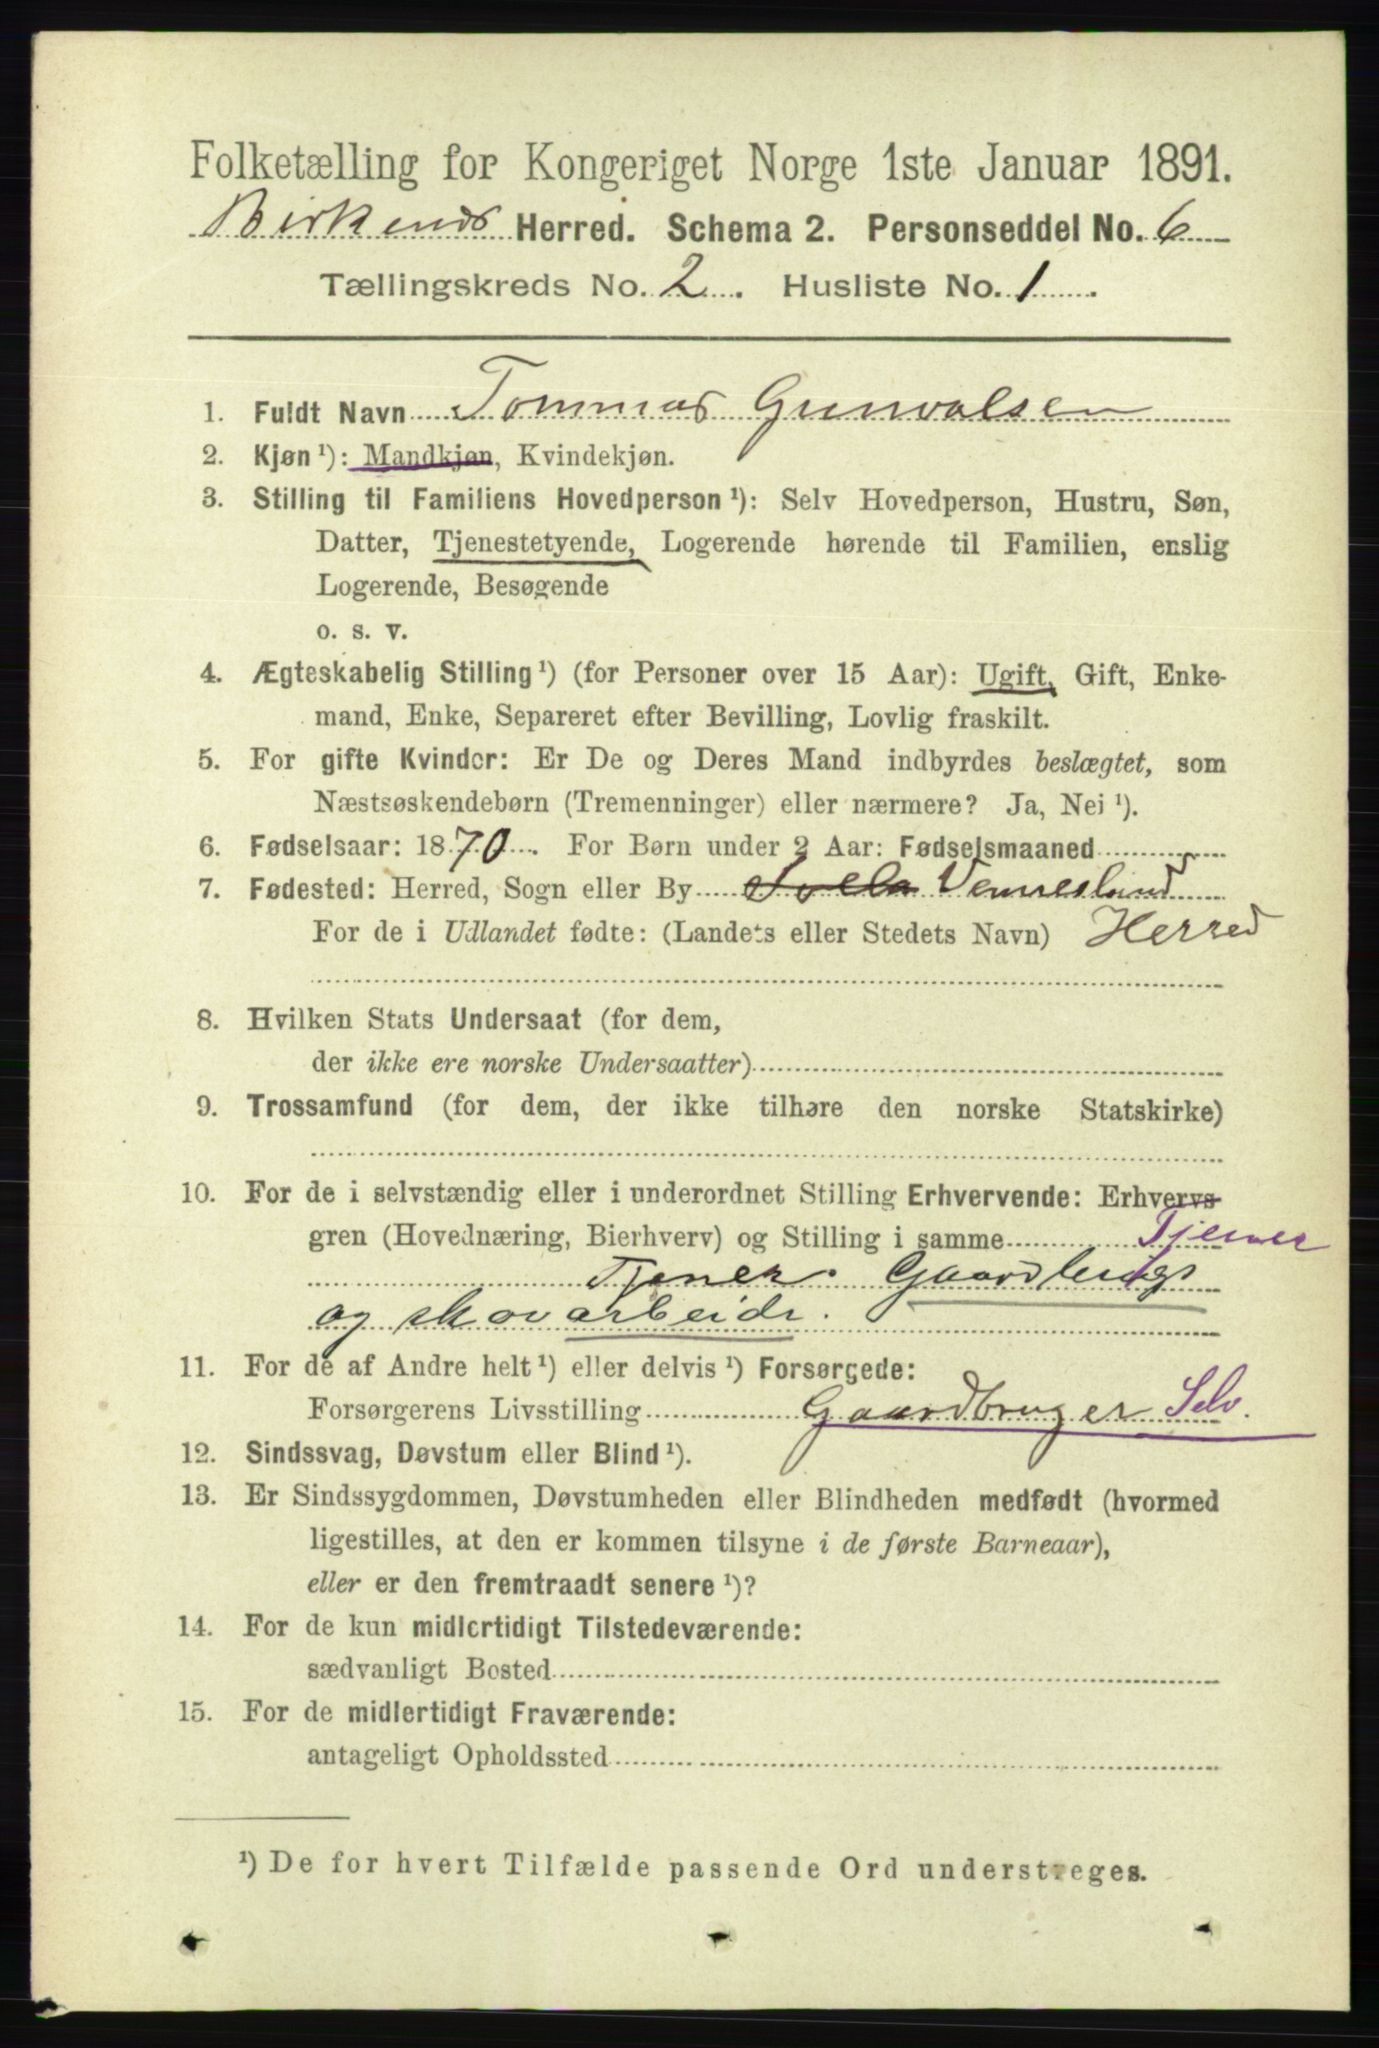 Folketælling for Kongeriget Norge 1ste Januar 1891.
Birkends Herred. Schema 2. Personseddel No. 6
Tællingskreds No. 2. Husliste No. 1.
1. Fuldt Navn Tommas Gunvalsen
2. Kjøn ¹): Mandkjøn, Kvindekjøn.
3. Stilling til Familiens Hovedperson ¹): Selv Hovedperson, Hustru, Søn,
Datter, Tjenestetyende, Logerende hørende til Familien, enslig
Logerende, Besøgende
o. s. v.
4. Ægteskabelig Stilling ¹) (for Personer over 15 Aar): Ugift, Gift, Enke-
mand, Enke, Separeret efter Bevilling, Lovlig fraskilt.
5. For gifte Kvinder: Er De og Deres Mand indbyrdes beslægtet, som
Næstsøskendebørn (Tremenninger) eller nærmere? Ja, Nei ¹).
6. Fødselsaar: 1870. For Børn under 2 Aar: Fødselsmaaned
7. Fødested: Herred, Sogn eller By Venneslund
For de i Udlandet fødte: (Landets eller Stedets Navn) Herred
8. Hvilken Stats Undersaat (for dem,
der ikke ere norske Undersaatter)
9. Trossamfund (for dem, der ikke tilhøre den norske Statskirke)
10. For de i selvstændig eller i underordnet Stilling Erhvervende: Erhvervs
gren (Hovednæring, Bierhverv) og Stilling i samme Tjener
Tjener. Gaardbrugs
og skovarbeide.
11. For de af Andre helt ¹) eller delvis ¹) Forsørgede:
Forsørgerens Livsstilling Gaardbruger Selv.
12. Sindssvag, Døvstum eller Blind ¹).
13. Er Sindssygdommen, Døvstumheden eller Blindheden medfødt (hvormed
ligestilles, at den er kommen tilsyne i de første Barneaar),
eller er den fremtraadt senere ¹)?
14. For de kun midlertidigt Tilstedeværende:
sædvanligt Bosted
15. For de midlertidigt Fraværende:
antageligt Opholdssted
¹) De for hvert Tilfælde passende Ord understreges.